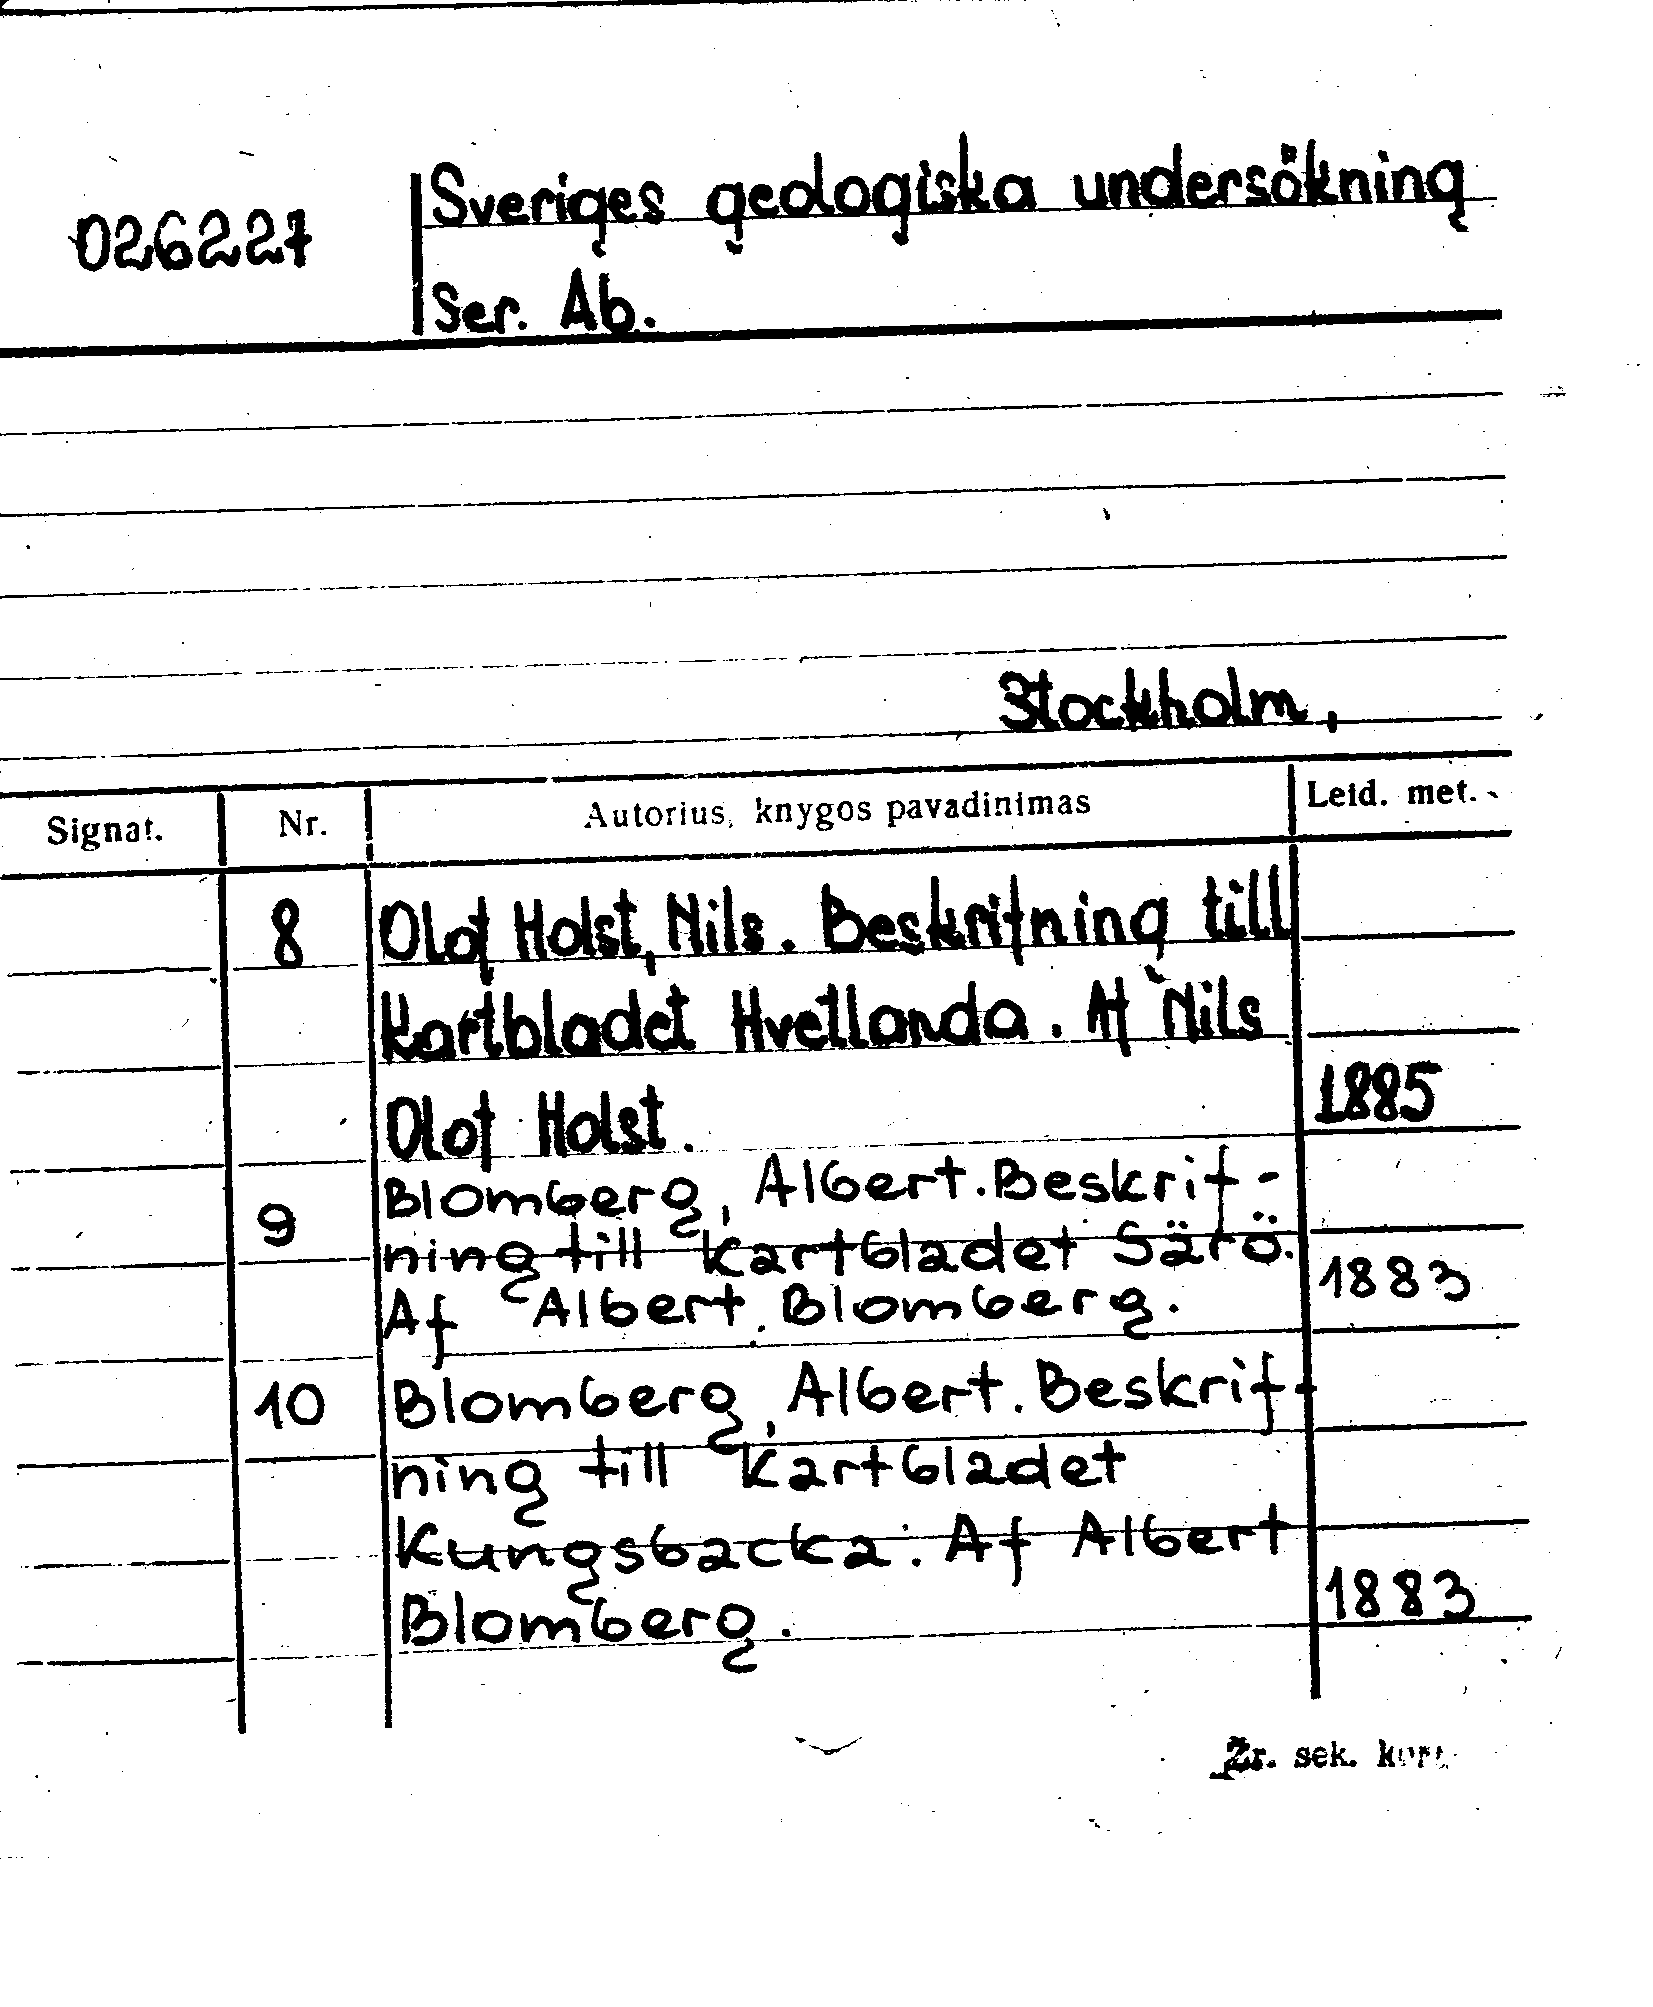 026227 Sveriges geologiska undersökning
Ser. Ab.
Stockholm,
Signat. Nr. Autorius, knygos pavadinimas Leid. met.
8 Olof Holst, Nils. Beskrifning till
Kartbladet Hvetlanda. Af Nils
Olof Holst. 1885
9 Blomberg, Albert. Beskrif-
ning till Kartbladet Särö.
Af Albert Blomberg. 1883
10 Blomberg, Albert. Beskrif-
ning till Kartbladet
Kungsbacka. Af Albert
Blomberg. 1883
Žr. sek. kort.